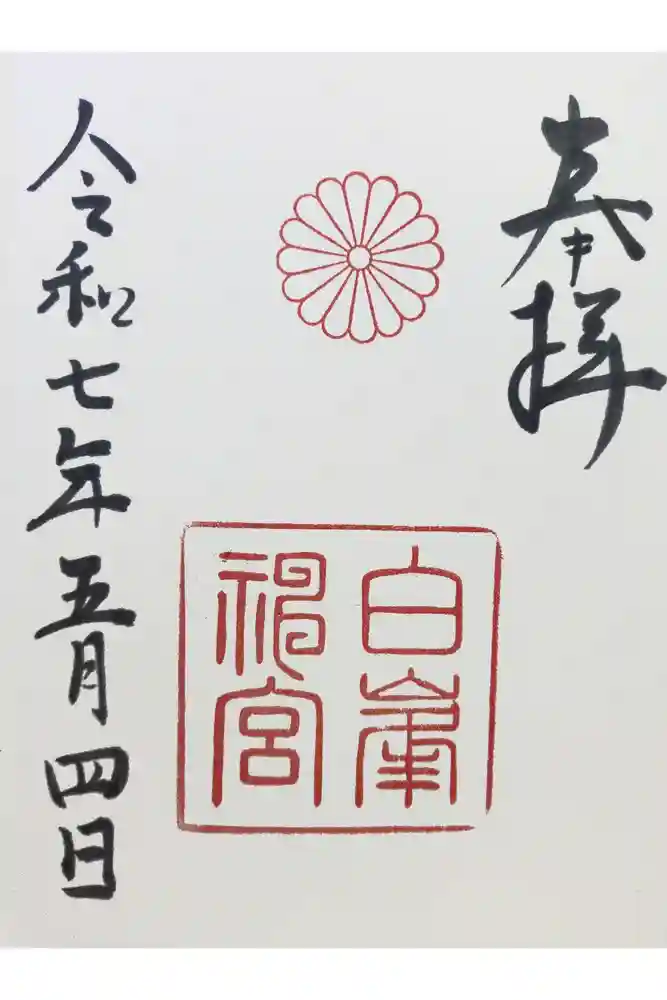 奉拝
白峯
神宮
令和七年五月四日